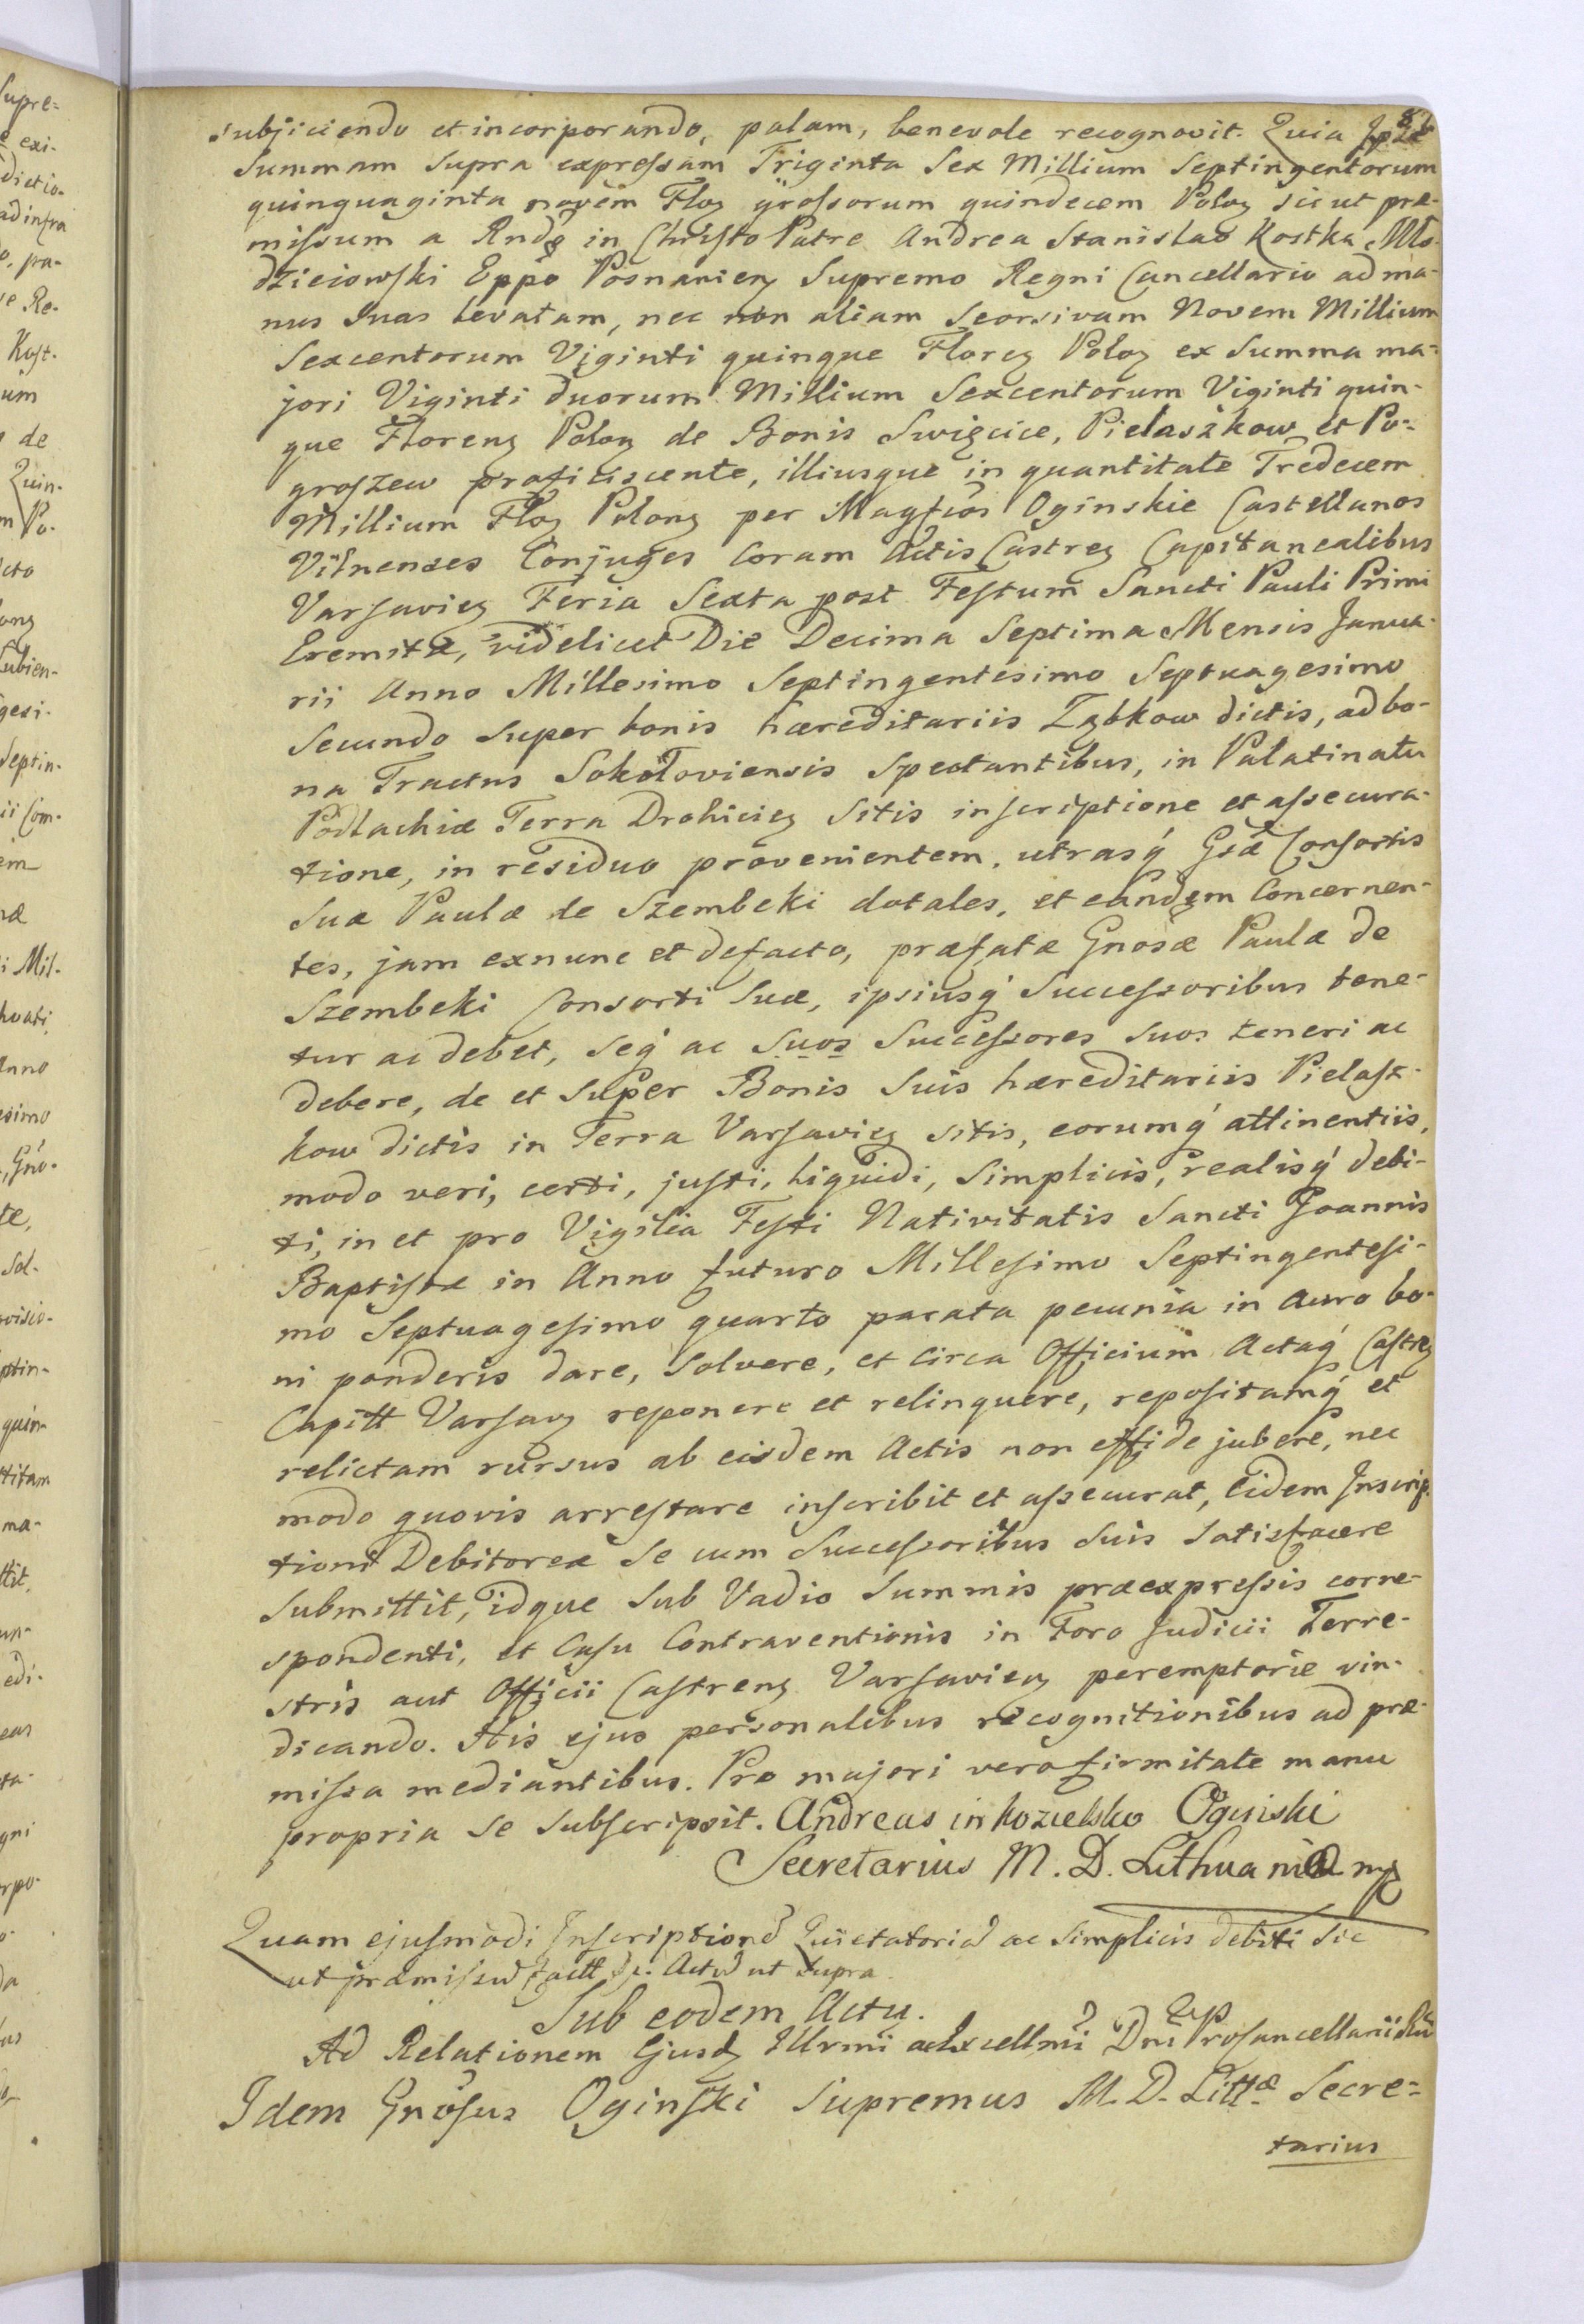 subjiciendo et incorporando, palam, benevole recognovit. Quia Ipse
Summam supra expressam Triginta Sex Millium Septingentorum
quinquaginta novem Floz grossorum quindecem Poloz sicut præ-
missum a Rndo in Christo Patre Andrea Stanislao Kostka Mło-
dzieiowski Eppo Posnaniens Supremo Regni Cancellario ad ma-
nus suas levatam, nec non aliam seorsivam Novem Millium
Sexcentorum Viginti quinque Florez Poloz ex Summa ma-
jori Viginti duorum Millium Sexcentorum Viginti quin-
que Florenz Polon de Bonis Swięcice, Pielaszkow et Po-
groszew proficiscente, illiusque in quantitate Tredecem
Millium Floz Polonz per Magfcos Oginskie Castellanos
Vilnenses Conjuges Coram Actis Castrez Capitanealibus
Varsaviez Feria Sexta post Festum Sancti Pauli Primi
Eremitæ, videlicet Die Decima Septima Mensis Janua-
rii Anno Millesimo Septingentesimo Septuagesimo
Secundo super bonis hæreditariis Ząbkow dictis, ad bo-
na Tractus Sokołoviensis spectantibus, in Palatinatu
Podlachiæ Terra Drohiciez sitis inscriptione et assecura-
tione, in residuo provenientem, utrasq́ Gsæ Consortis
Suæ Paulæ de Szembeki dotales, et eandem Concernen-
tes, jam exnunc et defacto, præfatæ Gnosæ Paulæ de
Szembeki Consorti Suæ, ipsiusq́ Successoribus tene-
tur ac debet, seq́ ac suos Successores suos teneri ac
debere, de et super Bonis suis hæreditariis Pielasz-
kow dictis in Terra Varsaviez sitis, eorumq́ attinentiis,
modo veri, certi, justi, liquidi, simplicis, realisq́ debi-
ti, in et pro Vigilia Festi Nativitatis Sancti Joannis
Baptistæ in Anno futuro Millesimo Septingentesi-
mo Septuagesimo quarto parata pecunia in Auro bo-
ni ponderis dare, solvere, et circa Officium Actaq́ Castrez
Capitt Varsavz reponere et relinquere, repositamq́ et
relictam rursus ab eisdem Actis non effide jubere, nec
modo quovis arrestare inscribit et assecurat, Eidem Inscrip-
tioni Debitoreæ se cum Successoribus suis satisfacere
submittit, idque sub Vadio Summis præexpressis corre-
spondenti, et Casu Contraventionis in Foro Judicii Terre-
stris aut Officii Castrenz Varsaviez peremptorie vin-
dicando. His ejus personalibus recognitionibus ad præ-
missa mediantibus. Pro majori vero firmitate manu
propria se subscripsit. Andreas in Kozielsko Oginski
Secretarius M. D. Lithuaniæ mp
Quam ejusmodi Inscriptione Quietatoria ac simplicis debiti sic
ut præmissu Actu ut supra
Sub eodem Actu.
Ad Relationem Ejusd Illrmi ac Excellmi Dni Procancellarii
Idem Gnosus Oginski Supremus M. D. Littæ Secre-
tarius